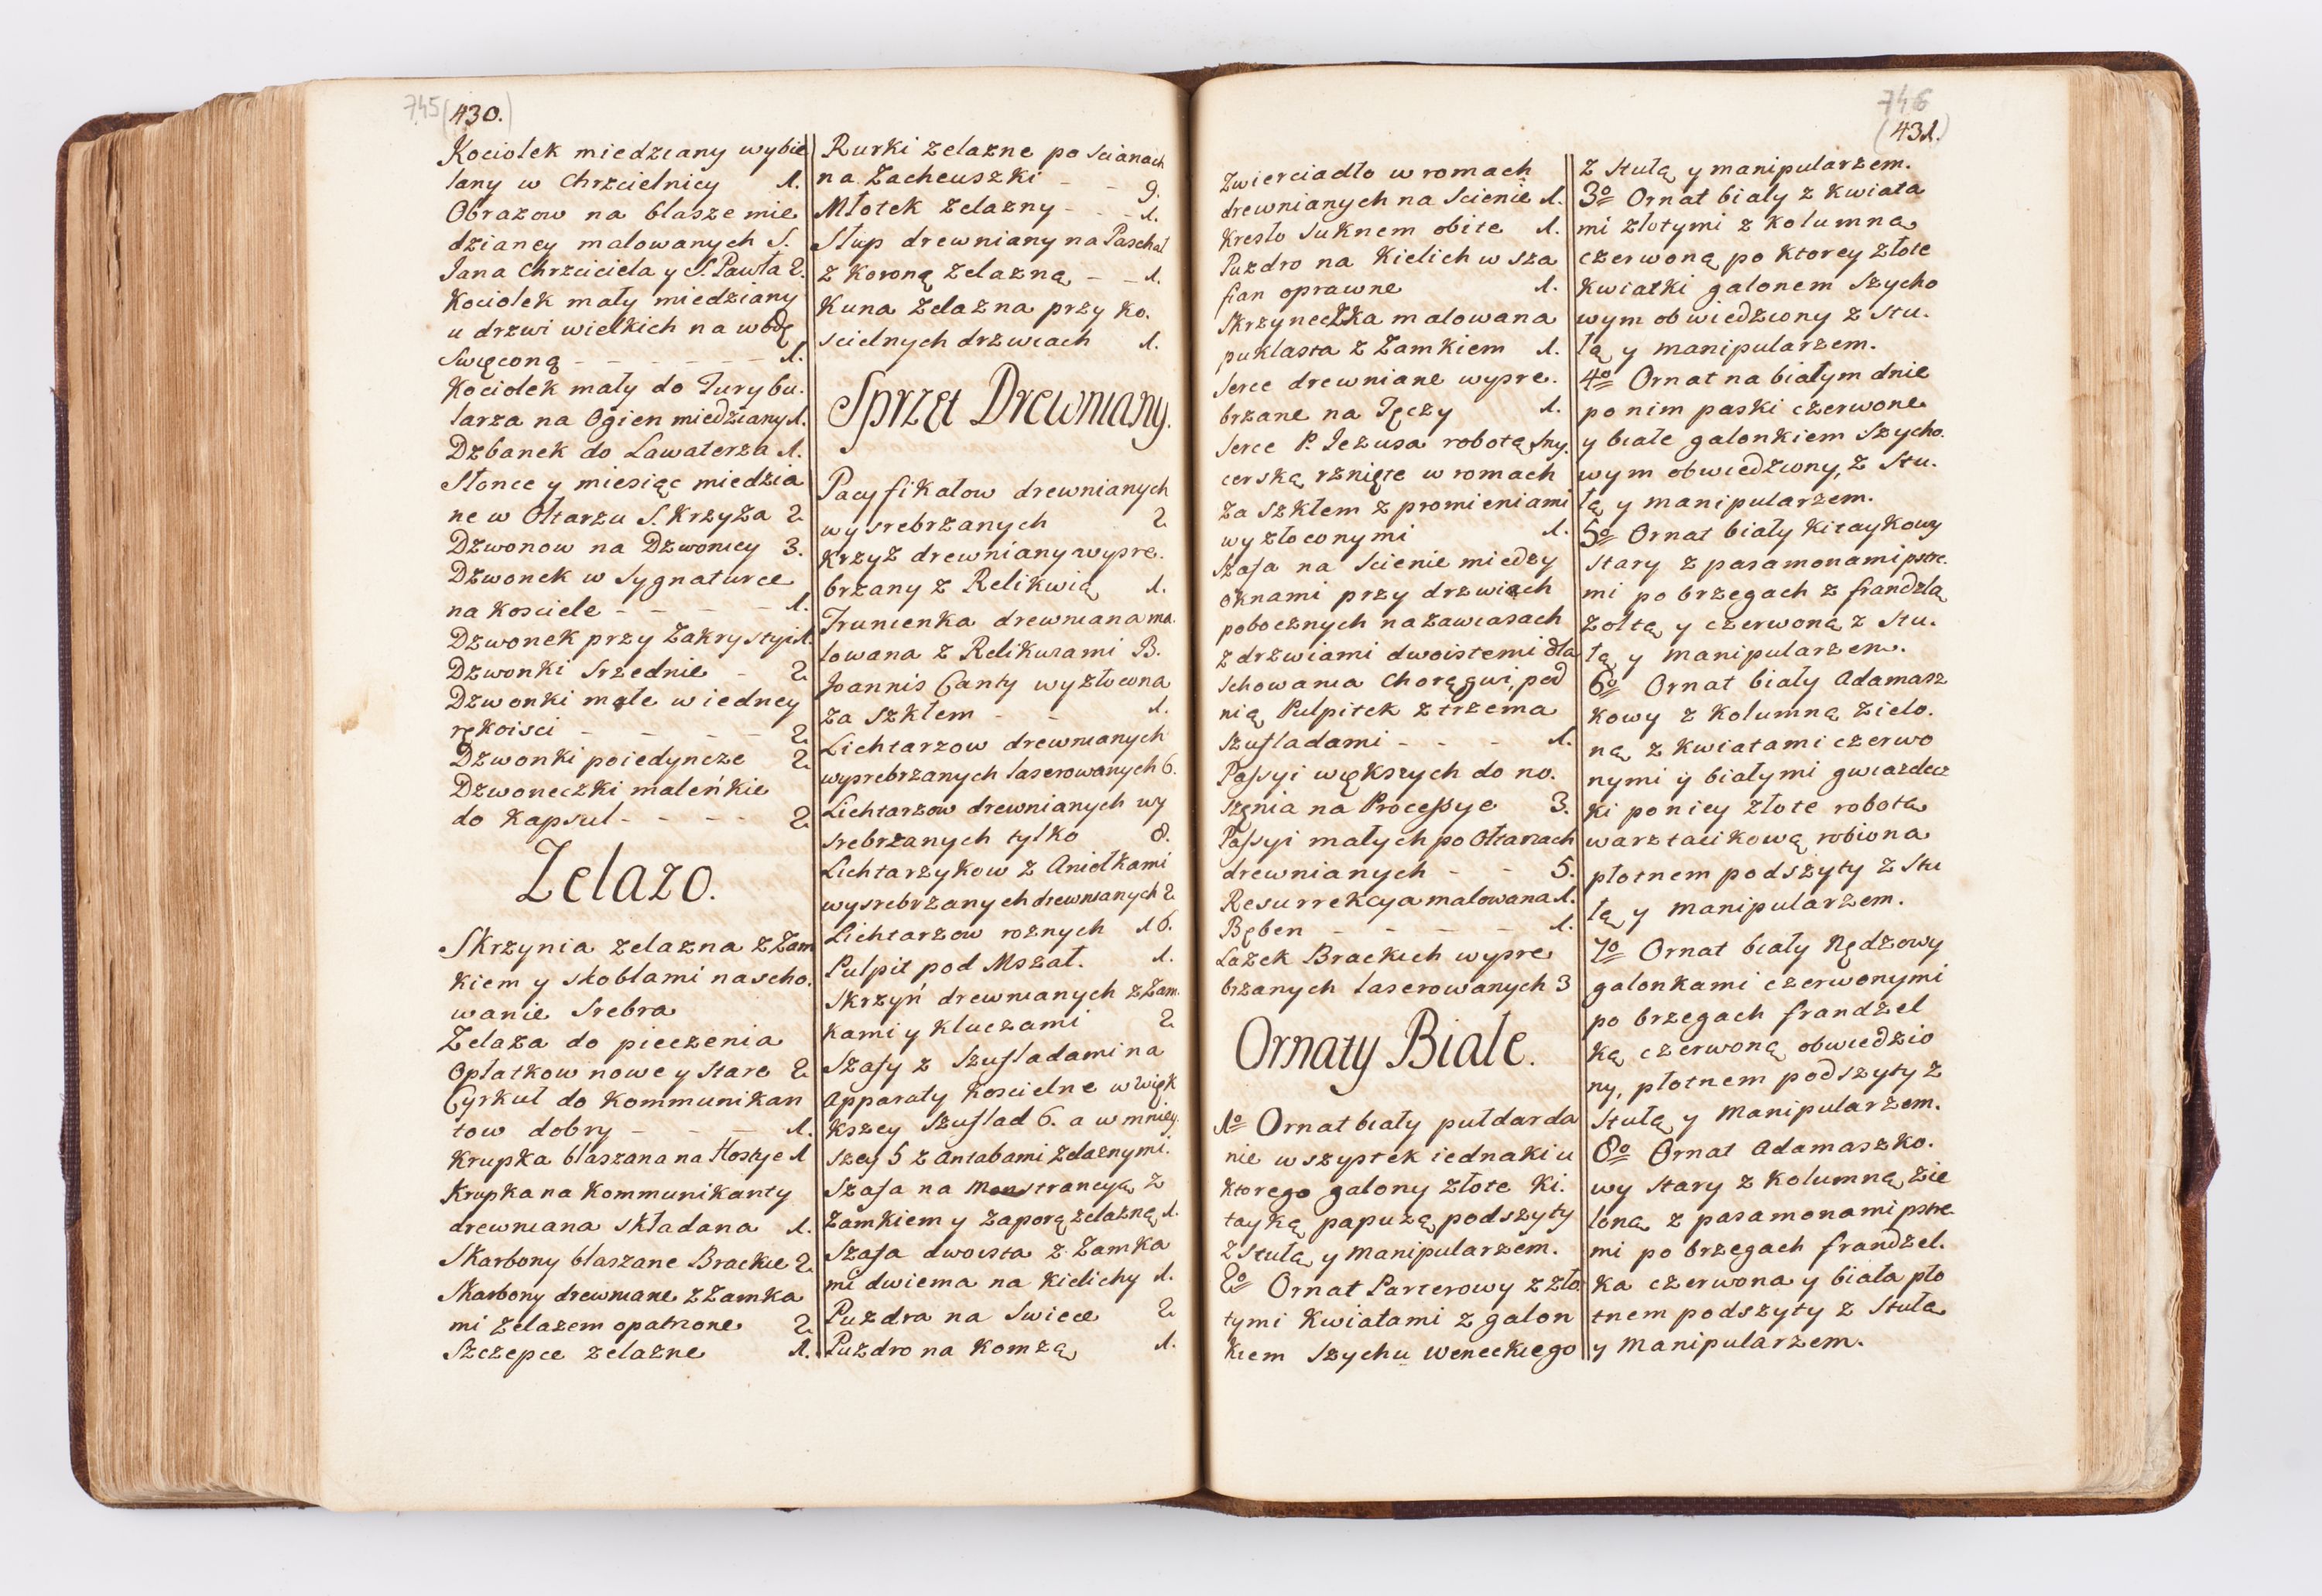 745
(430.)
Kociolek miedziany wybie
lany w Chrzcielnicy 1.
Obrazow na blasze mie
dzianey malowanych S.
Jana Chrzciciela y S. Pawła 2.
Kociolek mały miedziany
u drzwi wielkich na wodę
Swięconą - - - - - - 1.
Kociolek mały do Turybu.
larza na Ogien miedziany 1.
Dzbanek do Lawaterza 1.
Słonce y miesiąc miedzia
ne w Ołtarzu S. Krzyża 2
Dzwonow na Dzwonicy 3.
Dzwonek w Sygnaturce
na Kosciele - - - - 1.
Dzwonek przy Zakrystyi 1.
Dzwonki Srzednie - 2
Dzwonki małe w iedney
rękoisci - - - - 2
Dzwonki poiedyncze 2
Dzwoneczki maleńkie
do Kapsul - - - - 2
Zelazo.
Skrzynia zelazna z Zam
kiem y skoblami na scho.
wanie Srebra
Zelaza do pieczenia
Opłatkow nowe y Stare 2
Cyrkuł do Kommunikan
tow dobry - - - 1.
Krupka blaszana na Hostye 1
Krupka na Kommunikanty
drewniana składana 1.
Skarbony blaszane Brackie 2.
Skarbony drewniane z Zamka
mi zelazem opatrzone 2.
Szczepce zelazne 1.
Rurki zelazne po scianach
na Zacheuszki - - 9.
Młotek zelazny - - - 1.
Słup drewniany na Paschał
z Koroną zelazną - - 1.
Kuna zelazna przy Ko.
scielnych drzwiach 1.
Sprzęt Drewniany.
Pacyfikałow drewnianych
wysrebrzanych 2
Krzyż drewniany wysre.
brzany z Relikwią 1.
Trumenka drewniana ma.
lowana z Relikwiami B.
Joannis Canty wyzłocona
za szkłem - - 1.
Lichtarzow drewnianych
wysrebrzanych laserowanych 6.
Lichtarzow drewnianych wy
srebrzanych tylko 8.
Lichtarzykow z Aniołkami
wysrebrzanych drewnianych 2
Lichtarzow roznych 16.
Pulpit pod Mszał. 1.
Skrzyń drewnianych z Zam.
kami y kluczami 2
Szafy z Szufladami na
Apparaty Koscielne w Więk
kszey Szuflad 6. a w mniey.
szey 5 z Antabami zelaznymi.
Szafa na Monstrancyą z
Zamkiem y Zaporą zelazną 1.
Szafa dwoista z Zamka
mi dwiema na Kielichy 1.
Puzdra na Swiece 2
Puzdro na Komzą 1.
746
(431.)
Zwierciadło w romach
drewnianych na Scienie 1.
Kresło Suknem obite 1.
Puzdro na Kielich w Sza
fian oprawne 1.
Skrzyneczka malowana
puklasta z Zamkiem 1.
Serce drewniane wysre.
brzane na Tęczy 1.
Serce P. Jezusa robotą Sny.
cerską rznięte w romach
za szkłem z promieniami
wyzłoconymi 1.
Szafa na Scienie miedzy
oknami przy drzwiach
pobocznych na zawiasach
z drzwiami dwoistemi dla
schowania Chorągwi, pod
nią Pulpitek z trzema
Szufladami - - - 1.
Passyi większych do no.
szęnia na Processye 3.
Passyi małych po Ołtarzach
drewnianych - - 5.
Resurrekcya malowana 1.
Bęben - - - - 1.
Lazek Brackich wysre
brzanych laserowanych 3
Ornaty Białe.
1o Ornat biały pułdarda
nie wszystek iednaki u
ktorego galony złote Ki.
tayką papuzą podszyty
z Stułą y manipularzem.
2o Ornat Parterowy z zło
tymi Kwiatami z galon
kiem Szychu Weneckiego
z stułą y manipularzem.
3o Ornat biały z Kwiata
mi złotymi z Kolumną
czerwoną po ktorey złote
Kwiatki galonem Szycho
wym obwiedziony z Stu.
łą y manipularzem.
4o Ornat na białym dnie
po nim paski czerwone
y białe galonkiem Szycho.
wym obwiedziony, z Stu.
łą y manipularzem.
5o Ornat biały Kitaykowy
Stary z pasamonami pstre.
mi po brzegach z frandzlą
zołtą y czerwoną z Stu.
łą y manipularzem.
6o Ornat biały Adamasz
kowy z Kolumną zielo.
ną z kwiatami czerwo
nymi y białymi gwiazdecz
ki po niey złote robotą
warztacikową robiona
płotnem podszyty z Stu
łą y manipularzem.
7o Ornat biały Rędzowy
galonkami czerwonymi
po brzegach frandzel
ką czerwoną obwiedzio
ny, płotnem podszyty z
Stułą y manipularzem.
8o Ornat Adamaszko.
wy Stary z Kolumną zie
loną z pasamonami pstre
mi po brzegach frandzel.
ka czerwona y biała pło
tnem podszyty z Stułą
y Manipularzem.